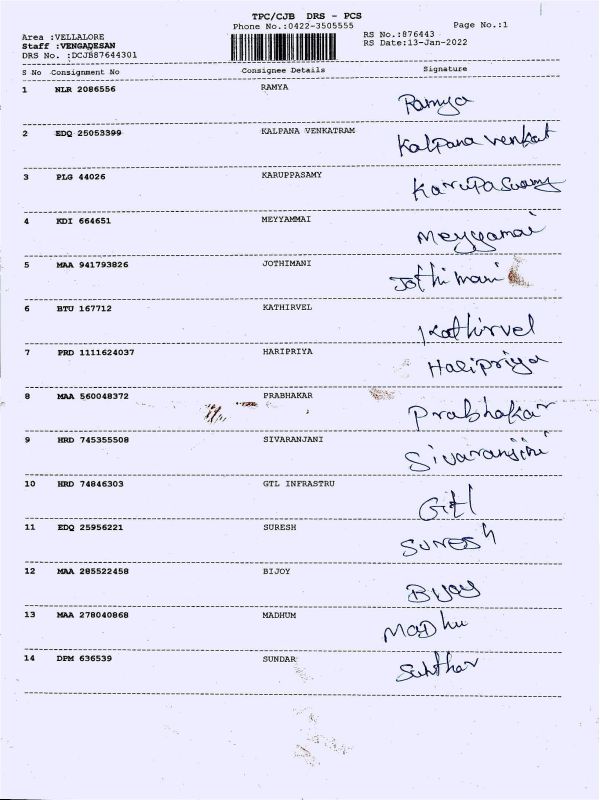 TPC/CJB DRS - PCS
Phone No.:0422-3505555 Page No.:1
Area :VELLALORE RS No.:876443
Staff :VENGADESAN RS Date:13-Jan-2022
DRS No. :DCJB87644301
S No Consignment No Consignee Details Signature
1 NLR 2086556 RAMYA Ramya
2 EDQ 25053399 KALPANA VENKATRAM Kalpana venkat
3 PLG 44026 KARUPPASAMY Karupaswamy
4 KDI 664651 MEYYAMMAI Meyyamai
5 MAA 941793826 JOTHIMANI Jothimani
6 BTU 167712 KATHIRVEL Kathirvel
7 PRD 1111624037 HARIPRIYA Haripriya
8 MAA 560048372 PRABHAKAR Prabhakar
9 HRD 745355508 SIVARANJANI Sivaranjini
10 HRD 74846303 GTL INFRASTRU Gtl
11 EDQ 25956221 SURESH SURESh
12 MAA 285522458 BIJOY Bijoy
13 MAA 278040868 MADHUM MaDhu
14 DPM 636539 SUNDAR Sunthar